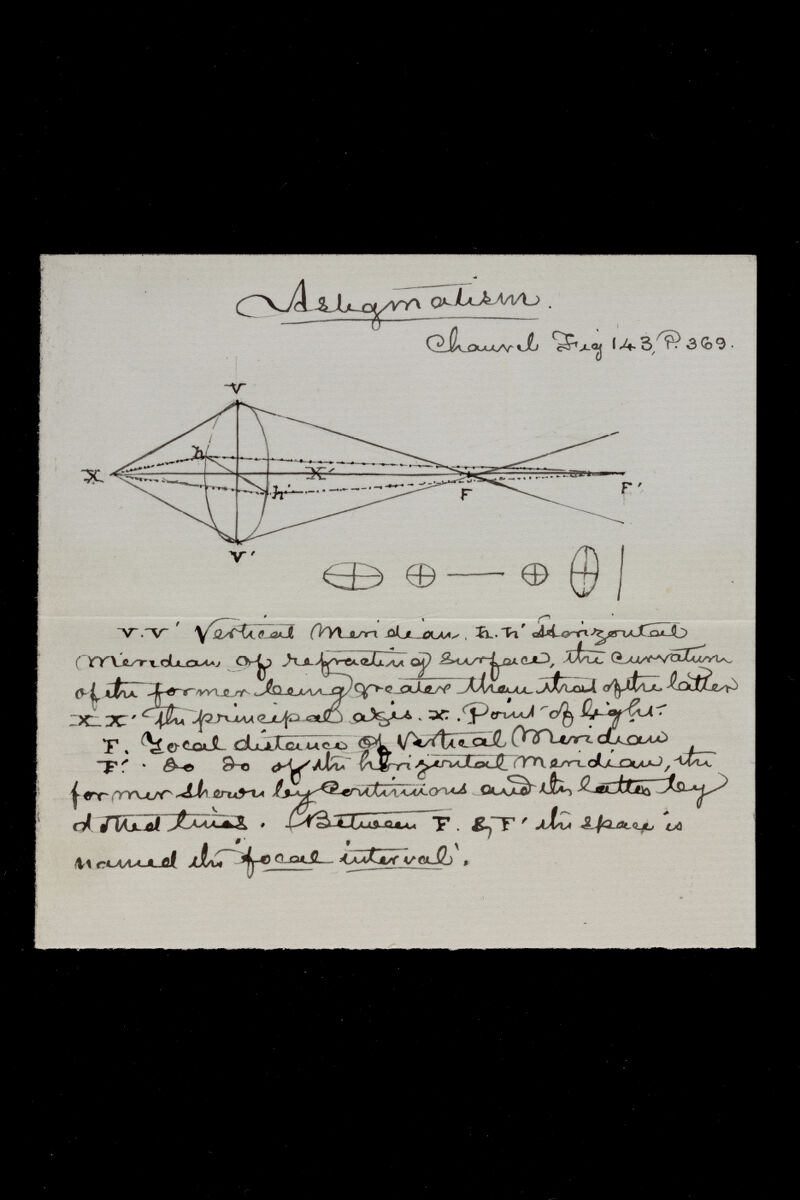 Astigmatism.
Chauvel Fig 143, P. 369.
V
h
X
X'
h'
F
F'
V'
V.V' Vertical Meridian. h.h' Horizontal
Meridian of refracting surface, the curvature
of the former being greater than that of the latter
X X' the principal axis. X. Point of light.
F. Focal distance of Vertical Meridian
F'. do do of the horizontal meridian, the
former shown by continuous and the latter by
dotted lines. Between F. & F' the space is
named the "focal interval".